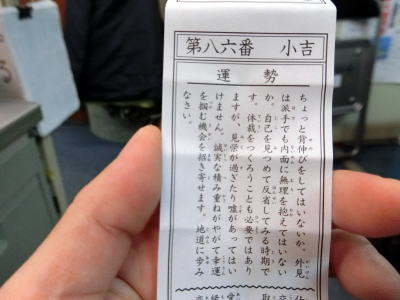 第八六番 小吉
運勢
ちょっと背伸びをしてはいないか。外見
は派手でも内面に無理を抱えてはいない
か。自己を見つめて反省してみる時期で
す。体裁をつくろうことも必要ではあり
ますが、見栄が過ぎたり嘘があってはい
けません。誠実な積み重ねがやがて幸運
を掴む機会を招き寄せます。地道に歩み
なさい。